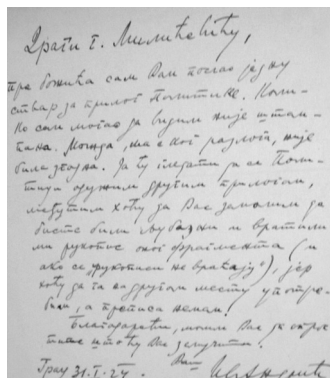 Драги г. Милићевићу,
пре божића сам Вам послао једну
ствар за прилог Политике. Коли-
ко сам могао да видим није штам-
пана. Можда, ма с ког разлога, није
била згодна. Ја ћу гледати да се Поли-
тици одужим другим прилогом,
међутим хоћу да Вас замолим да
бисте били љубазни и вратили
ми рукопис оног фрагмента (и
ако се „рукописи не враћају"), јер
хоћу да га на другом месту употре-
бим, а преписа немам.
Благодарећи, молим Вас да опрос-
тите што ћу Вас
Ваш
Грац 31. I. 24. Иво Андрић